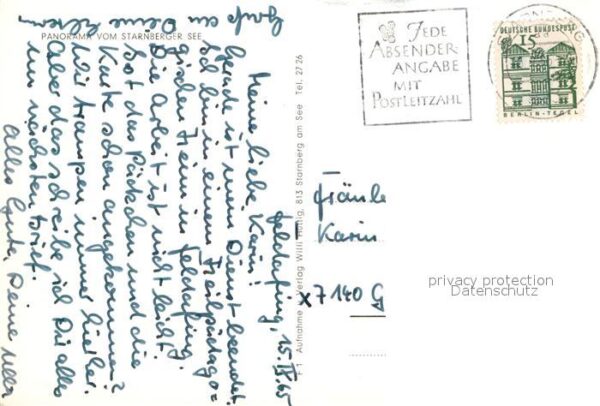 PANORAMA VOM STARNBERGER SEE
Feldafing, 15. IX. 65
Meine liebe Karin!
Gerade ist mein Dienst beendet.
Ich bin in einem Heilpädago=
gischen Heim in Feldafing.
Die Arbeit ist nicht leicht.
Ist das Päckchen und die
Karte schon angekommen?
Wir trampen immer
Aber das schreibe ich Dir alles
im nächsten Brief.
Alles Gute, Deine
Grüße an
Deine Eltern
F 1 Aufnahme u. Verlag Willi Hattig, 813 Starnberg am See Tel. 27 26
JEDE
ABSENDER-
ANGABE
MIT
POSTLEITZAHL
DEUTSCHE BUNDESPOST
15
BERLIN-TEGEL
Fräule
Karin
x7140 G
privacy protection
Datenschutz